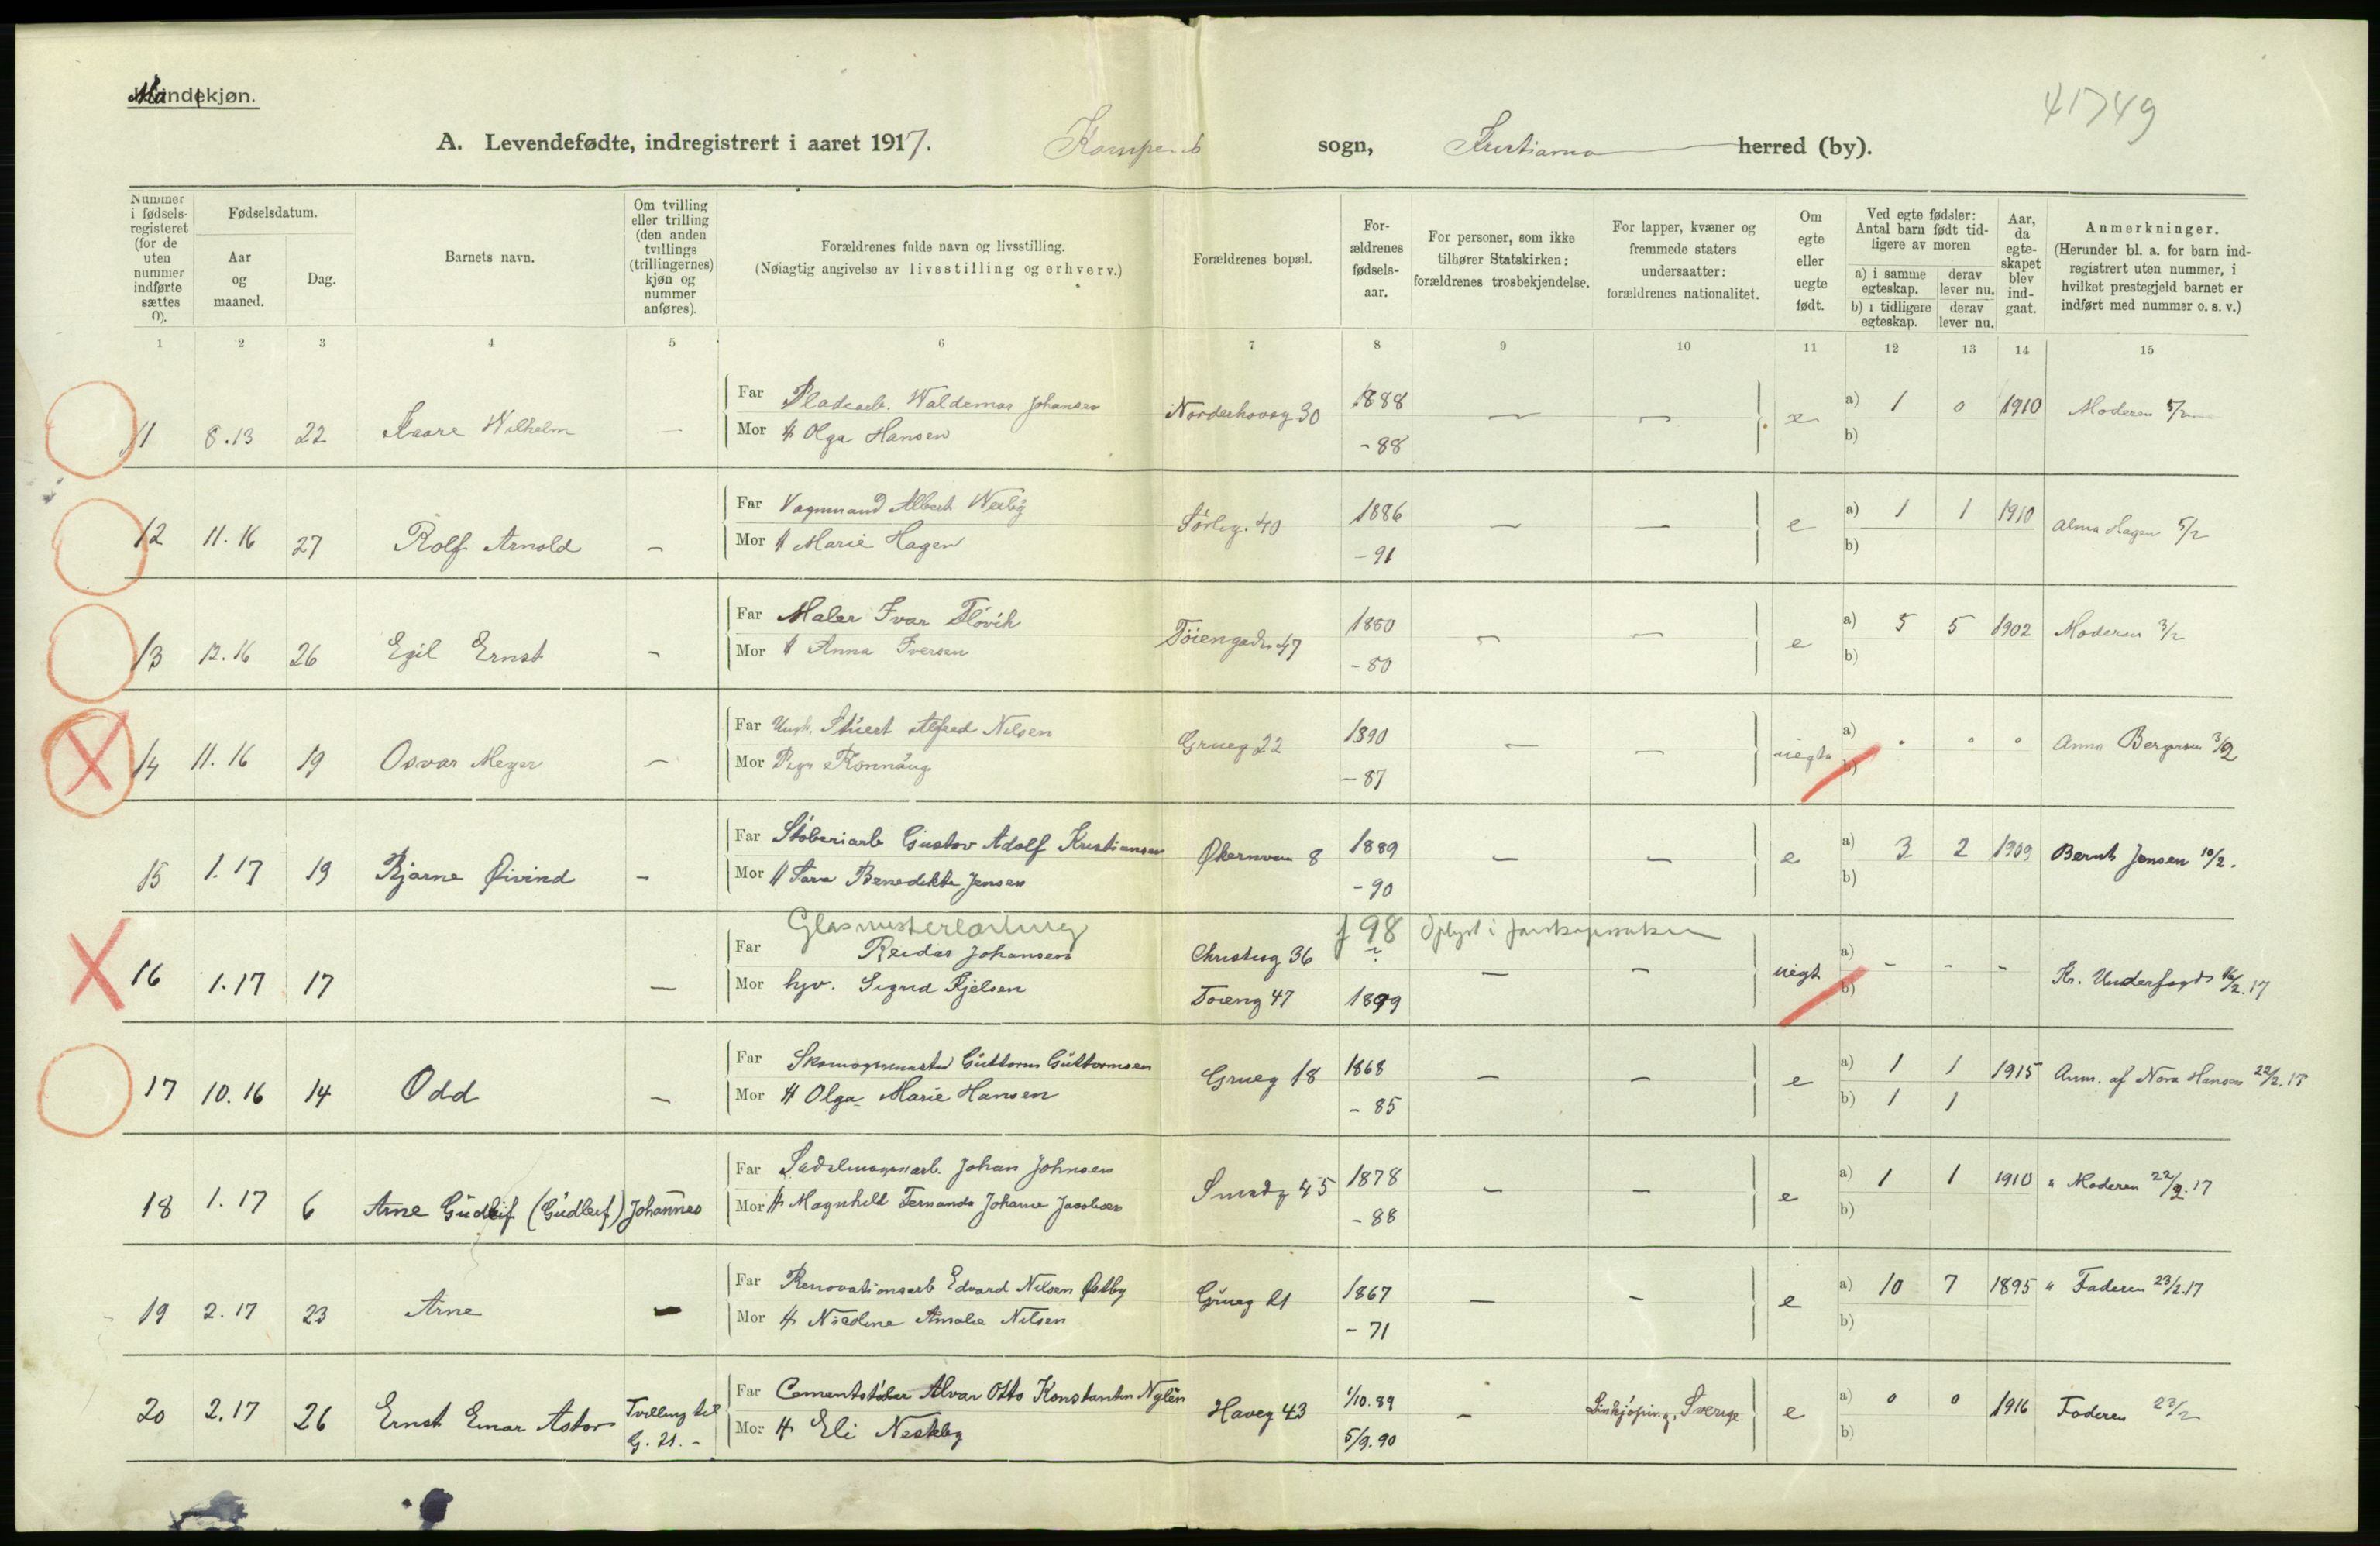 Mandkjøn.
41749
A. Levendefødte, indregistrert i aaret 1917. Kampens sogn, Kristiania herred (by).
Nummer i fødselsregisteret (for de uten nummer indførte sættes 0).
Fødselsdatum.
Aar og maaned.
Dag.
Barnets navn.
Om tvilling eller trilling (den anden tvillings (trillingernes) kjøn og nummer anføres).
Forældrenes fulde navn og livsstilling.
(Nøiagtig angivelse av livsstilling og erhverv.)
Forældrenes bopæl.
Forældrenes fødselsaar.
For personer, som ikke tilhører Statskirken: forældrenes trosbekjendelse.
For lapper, kvæner og fremmede staters undersaatter: forældrenes nationalitet.
Om egte eller uegte født.
Ved egte fødsler: Antal barn født tidligere av moren
a) i samme egteskap. derav lever nu.
b) i tidligere egteskap. derav lever nu.
Aar, da egteskapet blev indgaat.
Anmerkninger.
(Herunder bl. a. for barn indregistrert uten nummer, i hvilket prestegjeld barnet er indført med nummer o. s. v.)
1 2 3 4 5 6 7 8 9 10 11 12 13 14 15
Far Pladearb. Waldemar Johansen 1888 a) 1 0 1910
11 8.13 22 Kaare Wilhelm — Norderhovsg 30 — — e Moderen 5/2
Mor H Olga Hansen - 88 b)
Far Vognmand Albert Wexby 1886 a) 1 1 1910
12 11.16 27 Rolf Arnold — 40 — — e Alma Hagen 5/2
Mor H Marie Hagen - 91 b)
Far Maler Ivar Fløvik 1880 a) 5 5 1902
13 12.16 26 Egil Ernst — Tøiengaden 47 — — e Moderen 3/2
Mor H Anna Iversen - 80 b)
Far Ungk. Alfred Nilsen 1890 a)
14 11.16 19 Osvar Meyer — Grueg 22 — — uegte Anna Bergersen 3/2
Mor Pige Rønnaug - 87 b)
Far Støberiarb Gustav Adolf Kristiansen 1889 a) 3 2 1909
15 1.17 19 Bjarne Øivind — Økernveien 8 — — e Bernt Jensen 10/2.
Mor H Sara Benedikte Jensen - 90 b)
Glasmesterlærling f 98 Oplyst i farskapssaken
Far Reidar Johansen Christiesg 36 ? a) - - -
16 1.17 17 — — — uegt Kr. Underfogd 16/2.17
Mor hjv. Sigrid Kjelsen Tøieng 47 1899 b)
Far Skomagermester Guttorm Guttormsen 1868 a) 1 1 1915
17 10.16 14 Odd — Grueg 18 — — e Anm. af Nora Hansen 22/2.17
Mor H Olga Marie Hansen - 85 b) 1 1
Far Sadelmagerarb. Johan Johnsen 1878 a) 1 1 1910
18 1.17 6 Arne Gudleif (Gudleif) Johannes Smedg 45 — — e " Moderen 22/2.17
Mor H Magnhild Fernanda Johanne Jacobsen - 88 b)
Far Renovationsarb Edvard Nilsen Østby 1867 a) 10 7 1895
19 2.17 23 Arne — Grueg 21 — — e " Faderen 23/2.17
Mor H Nicoline Amalie Nilsen - 71 b)
Far Cementstøber Alvar Otto Konstantin Nylén 1/10.89 a) 0 0 1916
20 2.17 26 Ernst Einar Astor Tvilling til G. 21. - Haveg 43 — Linkjøping, Sverige e Faderen 27/2
Mor H Eli Nesteby 5/9.90 b)